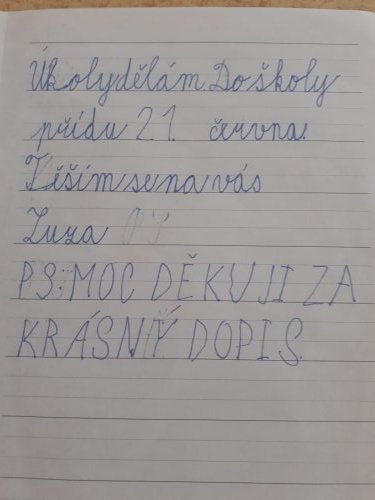 Úkoly dělám. Do školy
přídu 21. června.
Těším se na vás
Zuza
PS: MOC DĚKUJI ZA
KRÁSNÝ DOPIS.